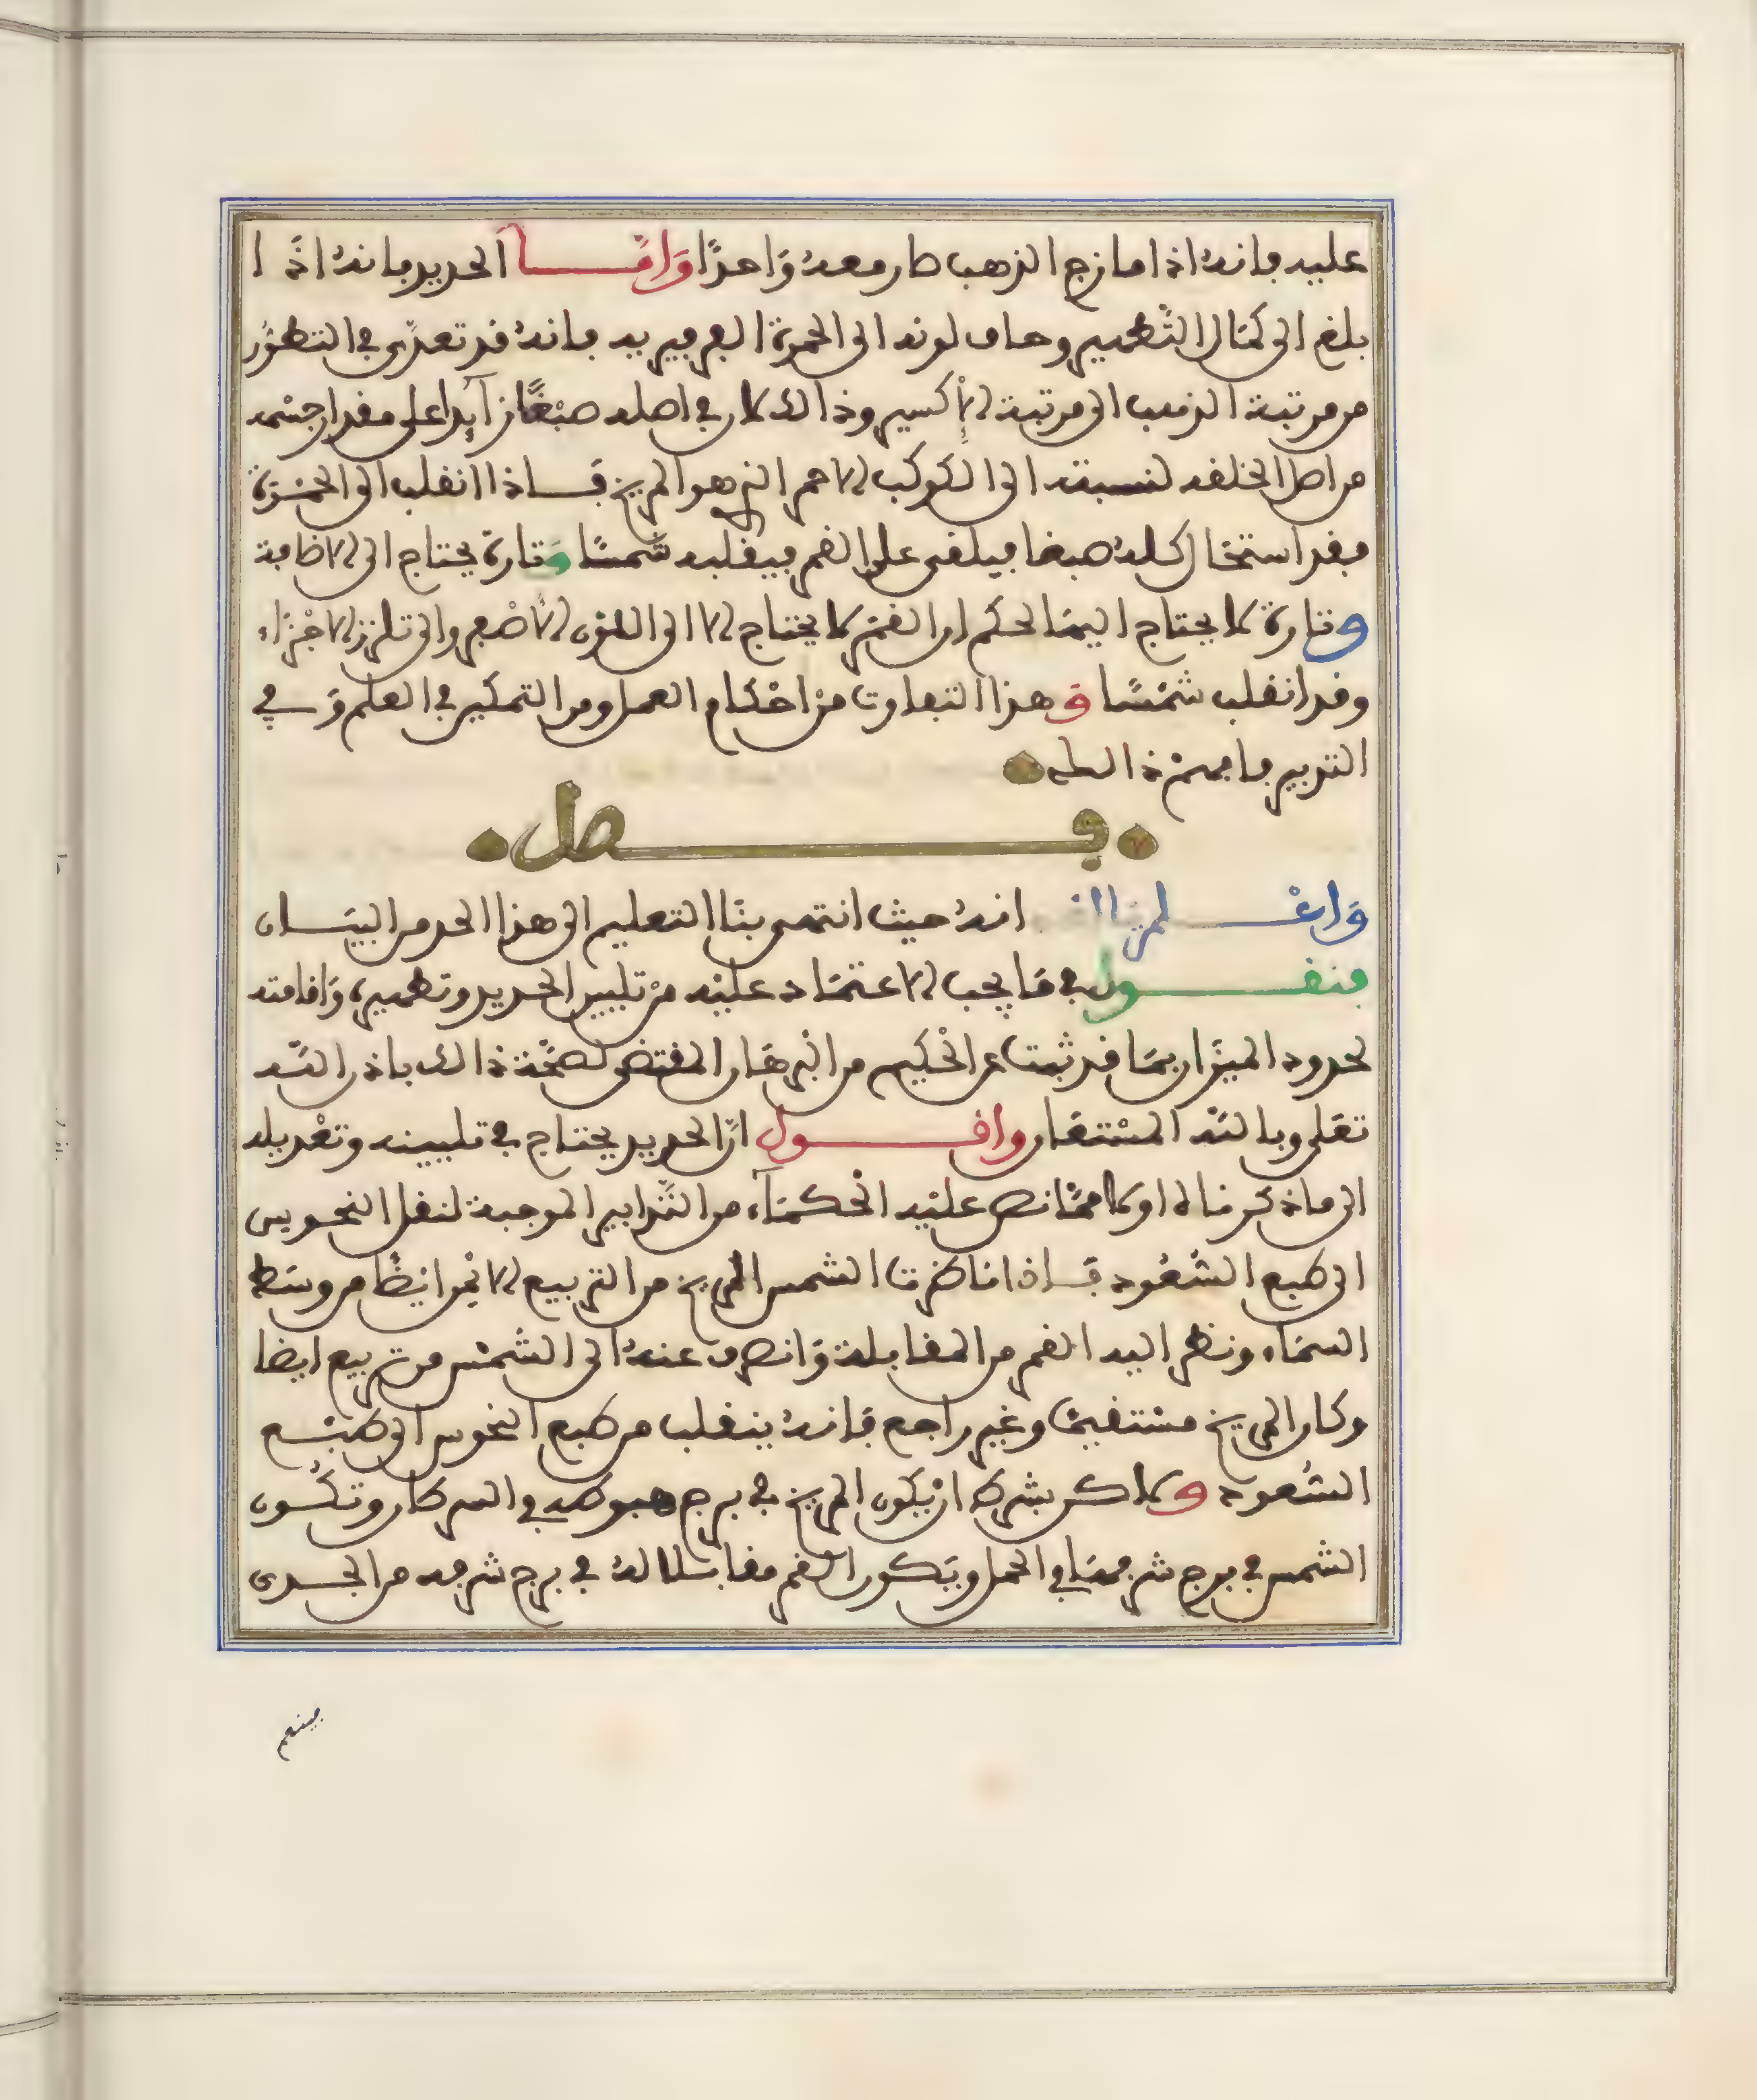 عليه فانه اذا مازج الذهب صار معه واحدا واما الحديد فانه اذا
بلغ الى كمال التطهير وحال لونه الى الحمرة الفرفيرية فانه قد تعدى في التطور
من مرتبة الذهب الى مرتبة الاكسير وذالك لان في اصله صبغا زآيدا على مقدار جسمه
من اصل الخلفه لنسبته الى الكوكب الاحمر الذي هو المريخ فاذا انقلب الى الحمرة
فقد استحال كله صبغا فيلقى على القمر فيقلبه شمسا وتارة يحتاج الى الاضافة
وتارة لا يحتاج اليها لحكم ان القمر لا يحتاج الا الى اللون الاصفر والى تلزز الاجزاء
وقد انقلب شمسا وهذا التفاوت من احكام العمل ومن التمكين في العلم وفي
التدبير فافهمن ذالك
فصل
واعلم انه حيث انتهى بنا التعليم الى هذا الحد من البيان
فنقول في ما يجب الاعتماد عليه من تليين الحديد وتطهيره واقامته
لحدود الميزان بما قد ثبت عن الحكيم من البرهان المقتضي لصحة ذالك باذن الله
تعلى وبالله المستعان واقول ان الحديد يحتاج في تليينه وتعديله
الى ما ذكرناه اولا مما نص عليه الحكمآء من التدابير الموجبة لنقل النحوس
الى طبع السعود فاذا ناظرت الشمس المريخ من التربيع الايمن ايضا من وسط
السماء ونظر اليه القمر من المقابلة وانصرف عنه الى الشمس من تربيع ايضا
وكان المريخ مستقيما وغير راجع فانه ينقلب من طبع النحوس الى طبع
السعود ولاكن بشرط ان يكون المريخ في برج هبوطه في السرطان وتكون
الشمس في برج شرفها في الحمل ويكون القمر مقابلا له في برج شرفه من الجدى